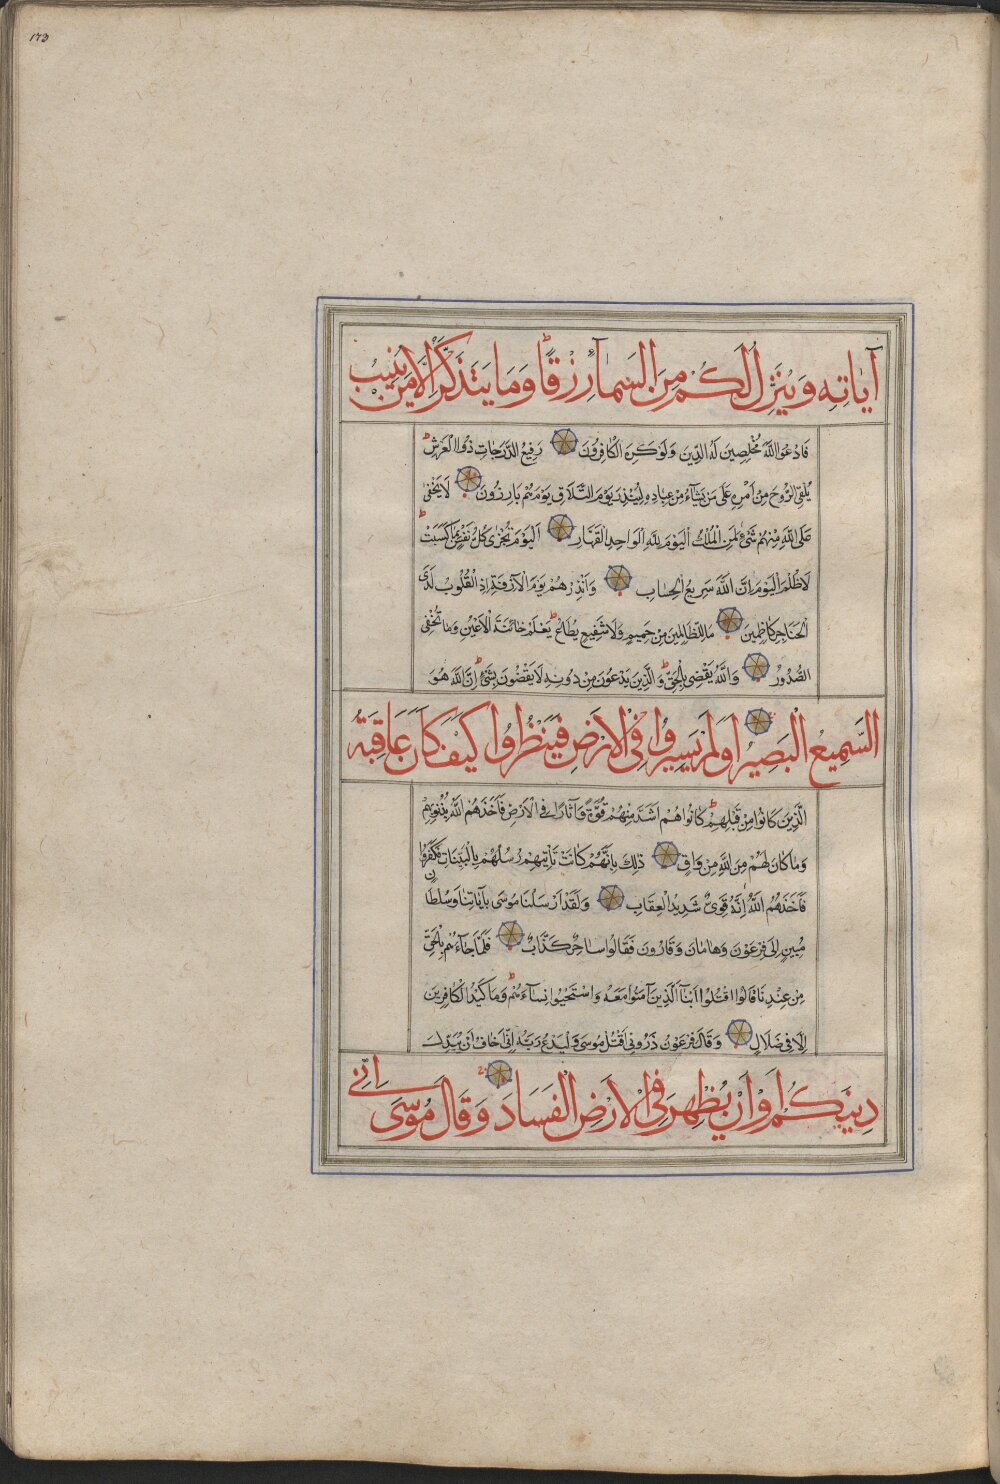 ١٧٣
آيَاتِهِ وَيُنَزِّلُ لَكُمْ مِنَ السَّمَآءِ رِزْقًا وَمَا يَتَذَكَّرُ اِلَّا مَنْ يُنِيبُ
فَادْعُوا اللَّهَ مُخْلِصِينَ لَهُ الدِّينَ وَلَوْ كَرِهَ الْكَافِرُونَ رَفِيعُ الدَّرَجَاتِ ذُوالْعَرْشِ
يُلْقِى الرُّوحَ مِنْ اَمْرِهِ عَلَى مَنْ يَشَآءُ مِنْ عِبَادِهِ لِيُنْذِرَ يَوْمَ التَّلَاقِ يَوْمَ هُمْ بَارِزُونَ لَا يَخْفَى
عَلَى اللَّهِ مِنْهُمْ شَىْءٌ لِمَنِ الْمُلْكُ الْيَوْمَ لِلَّهِ الْوَاحِدِ الْقَهَّارِ اَلْيَوْمَ تُجْزَى كُلُّ نَفْسٍ بِمَا كَسَبَتْ
لَا ظُلْمَ الْيَوْمَ اِنَّ اللَّهَ سَرِيعُ الْحِسَابِ وَاَنْذِرْهُمْ يَوْمَ الْآزِفَةِ اِذِ الْقُلُوبُ لَدَى
الْحَنَاجِرِ كَاظِمِينَ مَا لِلظَّالِمِينَ مِنْ حَمِيمٍ وَلَا شَفِيعٍ يُطَاعُ يَعْلَمُ خَائِنَةَ الْاَعْيُنِ وَمَا تُخْفِى
الصُّدُورُ وَاللَّهُ يَقْضِى بِالْحَقِّ وَالَّذِينَ يَدْعُونَ مِنْ دُونِهِ لَا يَقْضُونَ بِشَىْءٍ اِنَّ اللَّهَ هُوَ
السَّمِيعُ الْبَصِيرُ اَوَلَمْ يَسِيرُوا فِى الْاَرْضِ فَيَنْظُرُوا كَيْفَ كَانَ عَاقِبَةُ
الَّذِينَ كَانُوا مِنْ قَبْلِهِمْ كَانُوا هُمْ اَشَدَّ مِنْهُمْ قُوَّةً وَآثَارًا فِى الْاَرْضِ فَاَخَذَهُمُ اللَّهُ بِذُنُوبِهِمْ
وَمَا كَانَ لَهُمْ مِنَ اللَّهِ مِنْ وَاقٍ ذٰلِكَ بِاَنَّهُمْ كَانَتْ تَأْتِيهِمْ رُسُلُهُمْ بِالْبَيِّنَاتِ فَكَفَرُوا
فَاَخَذَهُمُ اللَّهُ اِنَّهُ قَوِىٌّ شَدِيدُ الْعِقَابِ وَلَقَدْ اَرْسَلْنَا مُوسَى بِآيَاتِنَا وَسُلْطَانٍ
مُبِينٍ اِلَى فِرْعَوْنَ وَهَامَانَ وَقَارُونَ فَقَالُوا سَاحِرٌ كَذَّابٌ فَلَمَّا جَاءَهُمْ بِالْحَقِّ
مِنْ عِنْدِنَا قَالُوا اقْتُلُوا اَبْنَآءَ الَّذِينَ آمَنُوا مَعَهُ وَاسْتَحْيُوا نِسَآءَهُمْ وَمَا كَيْدُ الْكَافِرِينَ
اِلَّا فِى ضَلَالٍ وَقَالَ فِرْعَوْنُ ذَرُونِى اَقْتُلْ مُوسَى وَلْيَدْعُ رَبَّهُ اِنِّى اَخَافُ اَنْ يُبَدِّلَ
دِينَكُمْ اَوْ اَنْ يُظْهِرَ فِى الْاَرْضِ الْفَسَادَ وَقَالَ مُوسَى اِنِّى